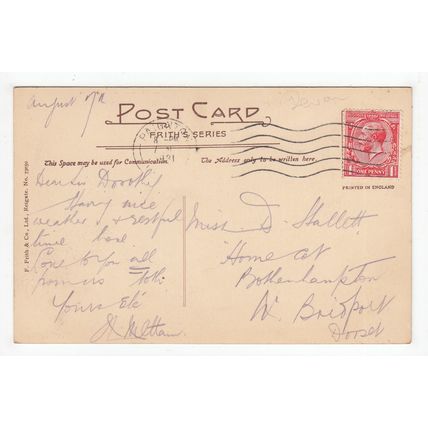 August 7th
Devon
POST CARD
FRITH'S SERIES
This Space may be used for Communication.
The Address only to be written here.
ONE PENNY
PRINTED IN ENGLAND
F. Frith & Co., Ltd., Reigate. No.
Dear
Having nice
weather & restful
time here
to you all
Yours Etc
Miss D. Hallett
Home Cot
Bothenhampton
Nr Bridport
Dorset